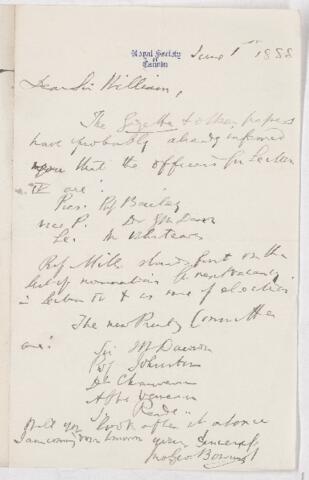 Royal Society
of
Canada
June 1st 1888
Dear Sir William,
The Gazette & other papers
have probably already informed
you that the officers for Section
IV are:
Pres. Prof Bailey
vice P. Dr G M Dawson
Se. Mr Whiteaves
Prof Mills stands first on the
list of nominations for next vacancy
in Section IV & is sure of election
The new Committee
are:
Sir Wm Dawson
Prof Johnson
Dr Chauveau
Abbé Verreau
Reade
Will you look after it at once
I am coming down tomorrow yours sincerely
Jno Geo Bourinot